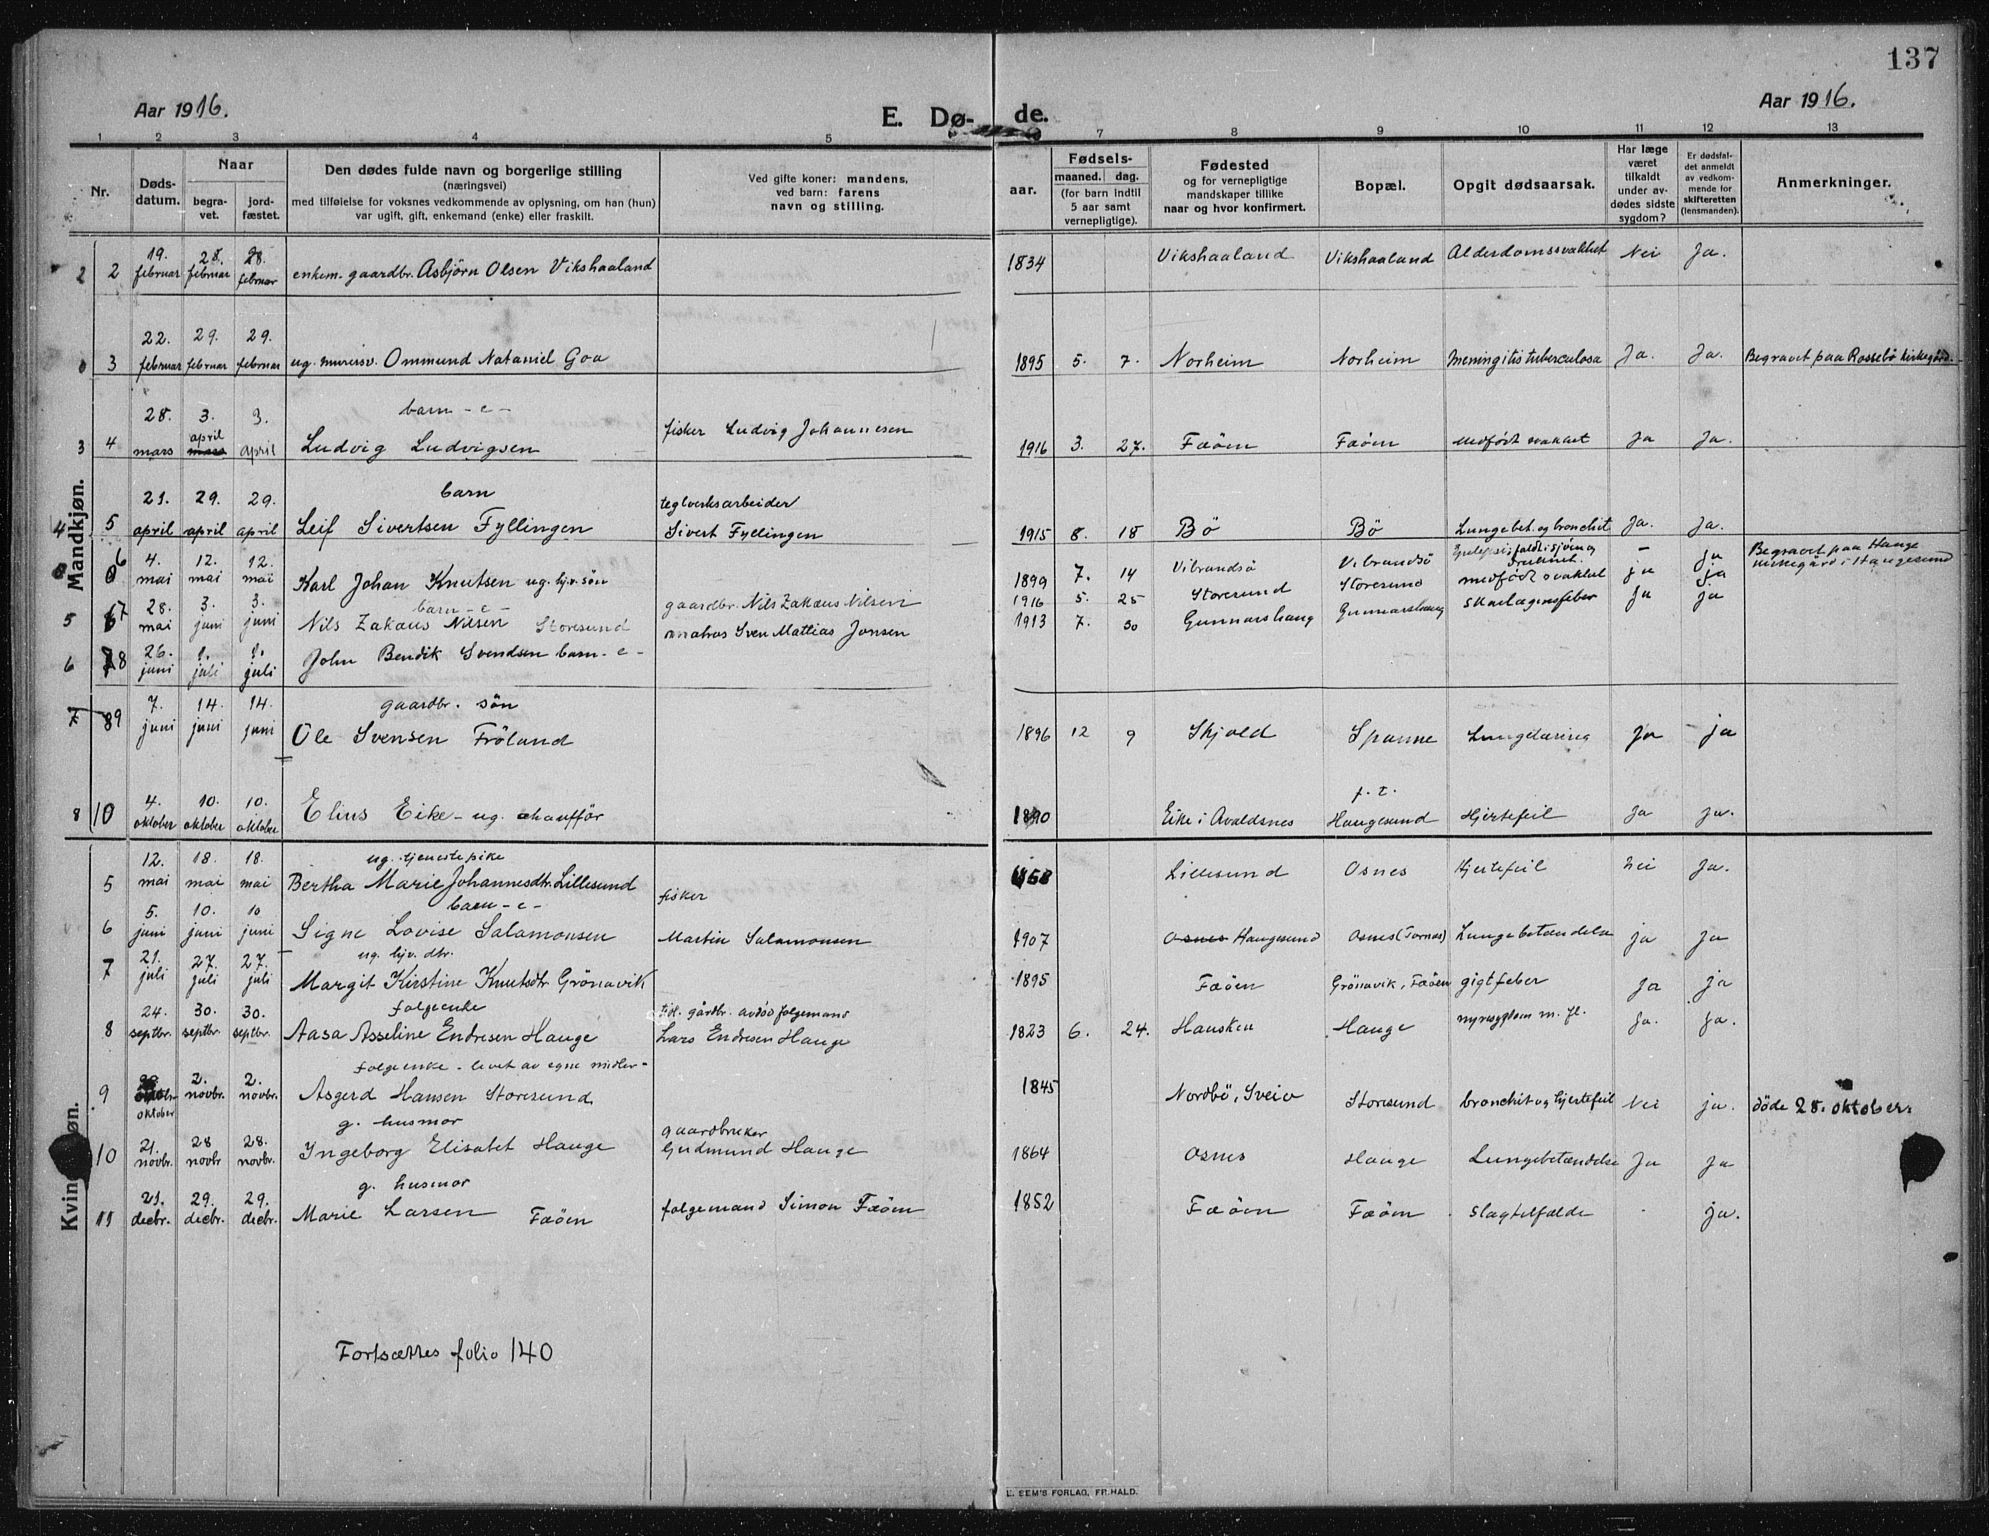 137
Aar 1916.
E. Dø- de.
Aar 1916.
1 2 3 4 5 7 8 9 10 11 12 13
Nr.
Døds-
datum.
Naar
begra-
vet.
jord-
fæstet.
Den dødes fulde navn og borgerlige stilling
(næringsvei)
med tilføielse for voksnes vedkommende av oplysning, om han (hun)
var ugift, gift, enkemand (enke) eller fraskilt.
Ved gifte koner: mandens,
ved barn: farens
navn og stilling.
aar.
Fødsels-
maaned. dag.
(for barn indtil
5 aar samt
vernepligtige).
Fødested
og for vernepligtige
mandskaper tillike
naar og hvor konfirmert.
Bopæl.
Opgit dødsaarsak.
Har læge
været
tilkaldt
under av-
dødes sidste
sygdom?
Er dødsfal-
det anmeldt
av vedkom-
mende for
skifteretten
(lensmanden).
Anmerkninger.
Mandkjøn.
2 2 19. februar 28. februar 28. februar enkem. gaardbr. Asbjörn Olsen Vikshaaland 1834 Vikshaaland Vikshaaland Alderdomssvakhet Nei Ja.
3 22. februar 29. februar 29. februar ug. murersv. Ommund Nataniel Goa 1895 5. 7. Norheim Norheim Meningitis tuberculosa Ja. Ja. Begravet paa Rossebö kirkegård.
barn - e -
3 4 28. mars 3. april mars 3. april Ludvig Ludvigsen fisker Ludvig Johannesen 1916 3. 27. Fæöen Fæöen medfödt svakhet Ja Ja.
barn
4 5 21. april 29. april 29. april Leif Sivertsen Fyllingen teglverksarbeider Sivert Fyllingen 1915 8. 18 Bö Bö Lungebet. og bronchit Ja. Ja.
6 4. mai 12. mai 12. mai Karl Johan Knutsen ug. hjv. sön 1899 7. 14 Vibrandsö Vibrandsö Epelepsi, faldt i sjöen og druknet. - Ja Begravet paa Hauge kirkegård i Haugesund
barn - e -
5 7 28. mai 3. juni 3. juni Nils Zakæus Nilsen Storesund gaardbr. Nils Zakæus Nilsen 1916 5. 25 Storesund Storesund medfödt svakhet ja ja
6 8 26. juni 1. juli 1. juli John Bendik Svendsen barn - e - matros Sven Mattias Jonsen 1913 7. 30 Gunnarshaug Gunnarshaug Skarlagensfeber Ja ja
gaardbr. sön
7 89 7. juni 14. juni 14. juni Ole Svensen Fröland 1896 12 9 Skjold Spanne Lungetæring Ja ja
8 10 4. oktober 10. oktober 10. oktober Elius Eike - ug. chaufför 1890 Eike i Avaldsnes p. t. Haugesund Hjertefeil Ja ja.
Kvin øn.
ug. tjenestepike
5 12. mai 18. mai 18. mai Bertha Marie Johannesdtr. Lillesund 1858 Lillesund Osnes Hjertefeil Nei Ja.
barn - e -
6 5. juni 10. juni 10 juni Signe Lovise Salamonsen fisker Martin Salamonsen 1907 Osnes Haugesund Osnes (Tornes) Lungebetændelse ja Ja
ug. hjv. dtr.
7 21. juli 27. juli 27. juli Margit Kirstine Knutsdtr Grönavik 1895 Fæöen Grönavik, Fæöen gigtfeber Ja ja
folgeenke
8 24. septbr. 30. septbr. 30. septbr. Aasa Asseline Endresen Hauge tidl. gårdbr. avdöd folgemand Lars Endresen Hauge 1823 6. 24. Hausken Hauge nyresygdom m. fl. Ja. Ja.
folgeenke - levet av egne midler -
9 oktober 2. novbr. 2. novbr. Asgerd Hansen Storesund 1845 Nordbö, Sveio Storesund bronchit og hjertefeil Nei ja. döde 28. oktober.
g. husmor
10 21. novbr. 28 novbr 28. novbr. Ingeborg Elisabet Hauge gaardbruker Gudmund Hauge 1864 Osnes Hauge Lungebetændelse Ja ja
g. husmor
11 21. decbr. 29. decbr. 29. decbr. Marie Larsen Fæöen folgemand Simon Fæöen 1852 Fæöen Fæöen slagtilfælde ja.
Fortsættes folio 140
E. SEM'S FORLAG, FR.HALD.